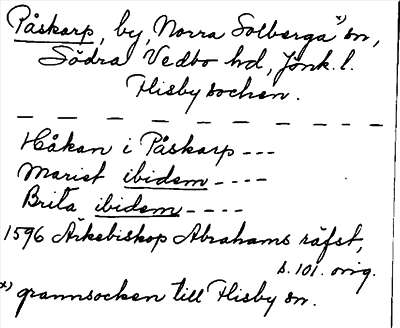 Påskarp, by, Norra Solberga*) sn,
Södra Vedbo hd, Jönk. l.
Flisby socken.
Håkan i Påskarp ---
Marist ibidem ----
Brita ibidem ----
1596 Ärkebiskop Abrahams räfst,
s. 101. orig.
*) grannsocken till Flisby sn.